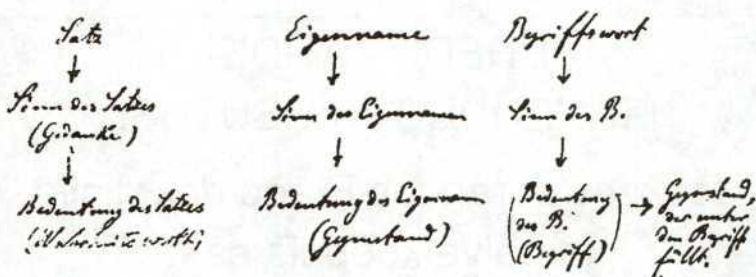 Satz
Sinn des Satzes
(Gedanke)
Bedeutung des Satzes
(Wahrheitswerth)
Eigenname
Sinn des Eigennamen
Bedeutung des Eigennam
(Gegenstand)
Begriffswort
Sinn des B.
Bedeutung
des B.
(Begriff)
Gegenstand,
der unter
den Begriff
fällt.